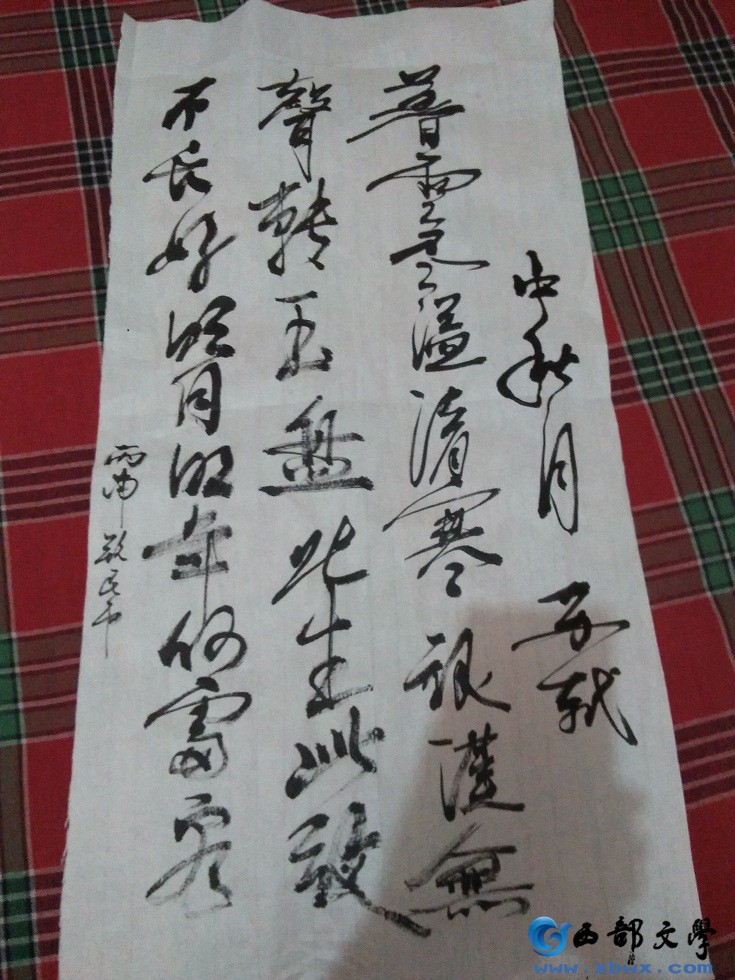 中秋月 苏轼
暮雲尽溢清寒銀漢無
聲轉玉盤此生此夜
不长好明月明年何處看
丙申
西部文學
www.xbwx.com